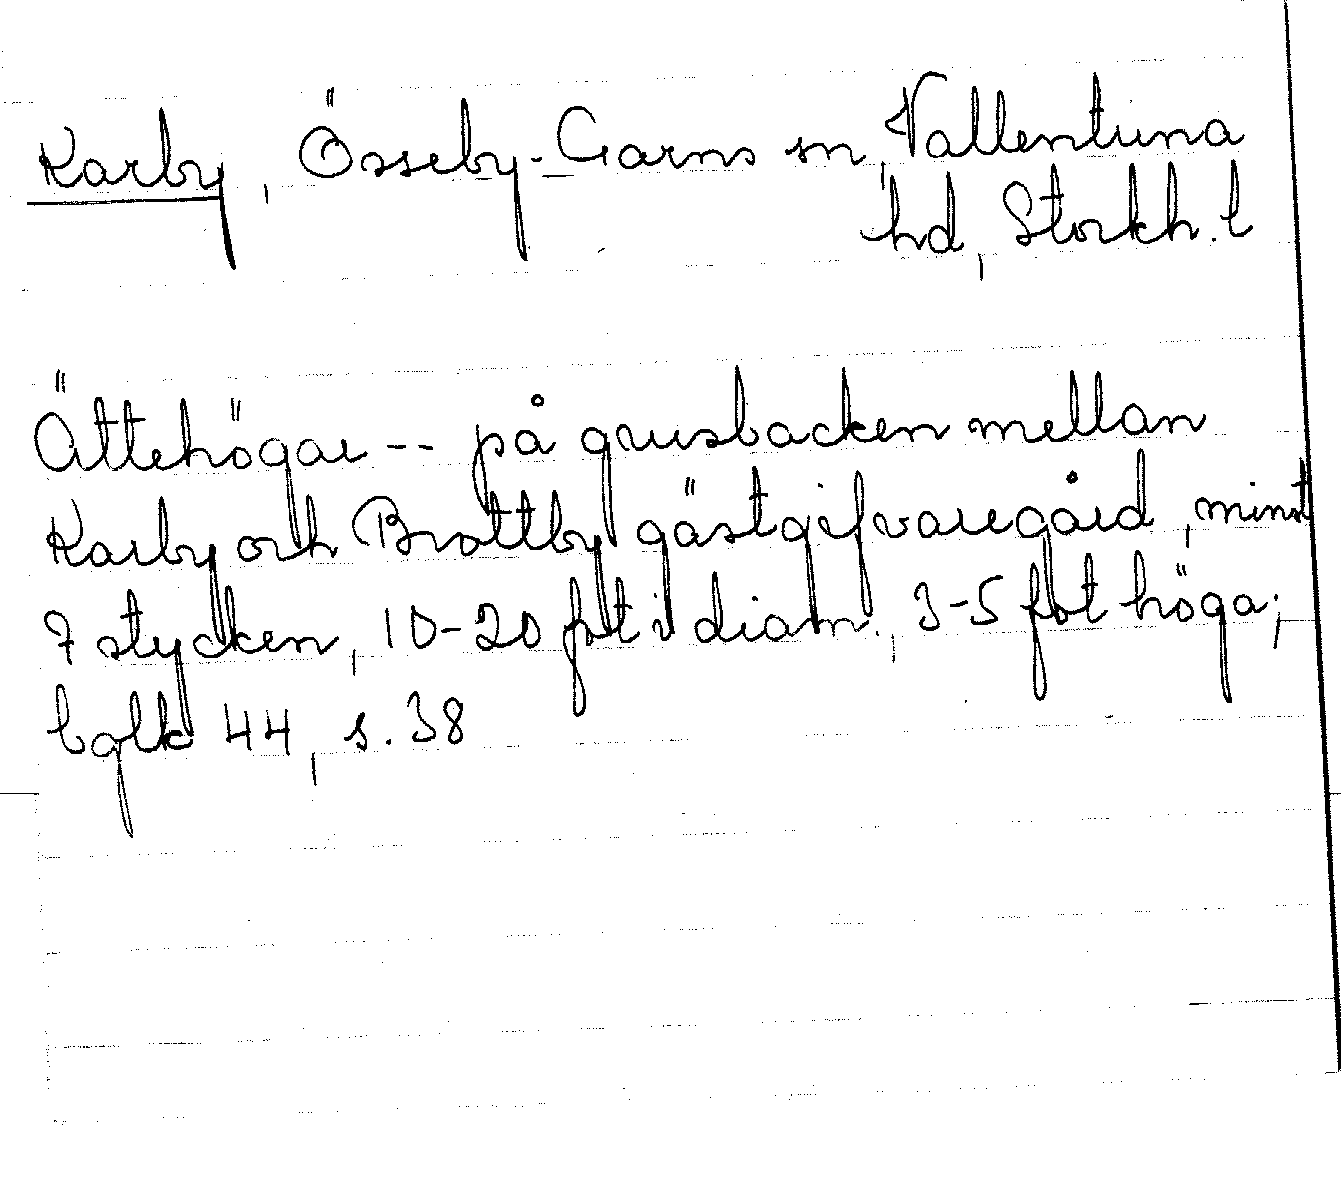 Karby, Össeby-Garns sn, Vallentuna
hd, Stockh. l
Ättehögar -- på grusbacken mellan
Karby och Brottby gästgifvaregård, minst
7 stycken, 10-20 fot i diam., 3-5 fot höga;
balk 44, s. 38